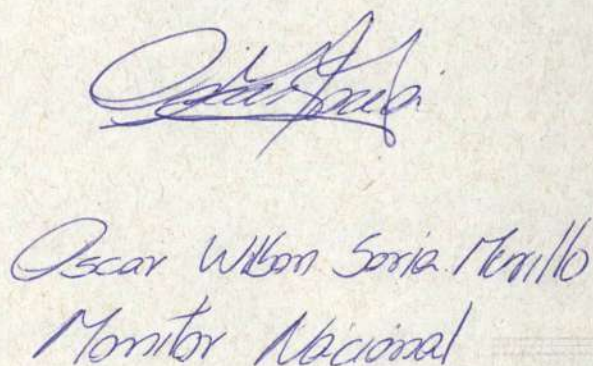 Oscar Wilson Soria Murillo
Monitor Nacional